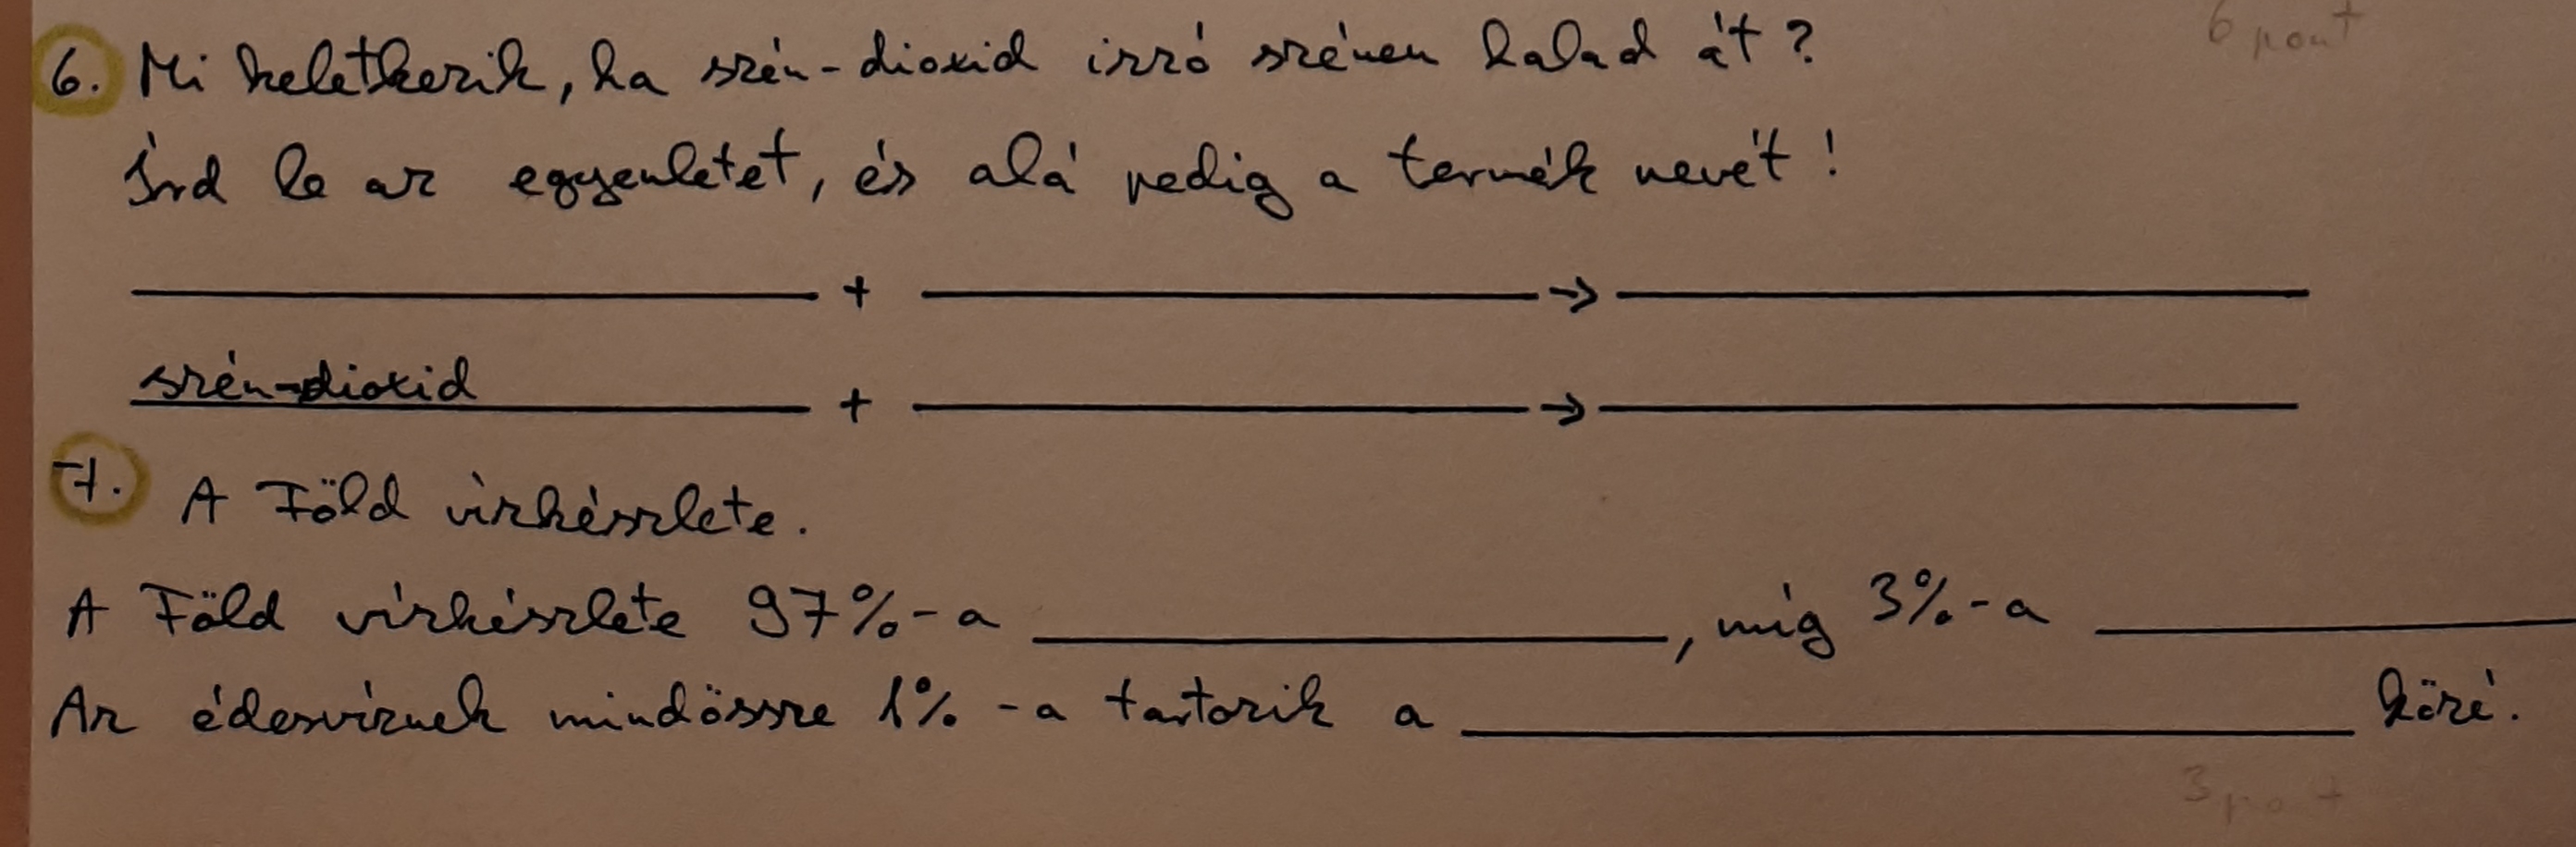 6 pont
6. Mi keletkezik, ha szén-dioxid izzó szénen halad át?
Írd le az egyenletet, és alá pedig a termék nevét!
____ + ____ → ____
szén-dioxid + ____ → ____
7. A Föld vízkészlete.
A Föld vízkészlete 97%-a ____, míg 3%-a ____
Az édesvíznek mindössze 1%-a tartozik a ____ közé.
3 pont